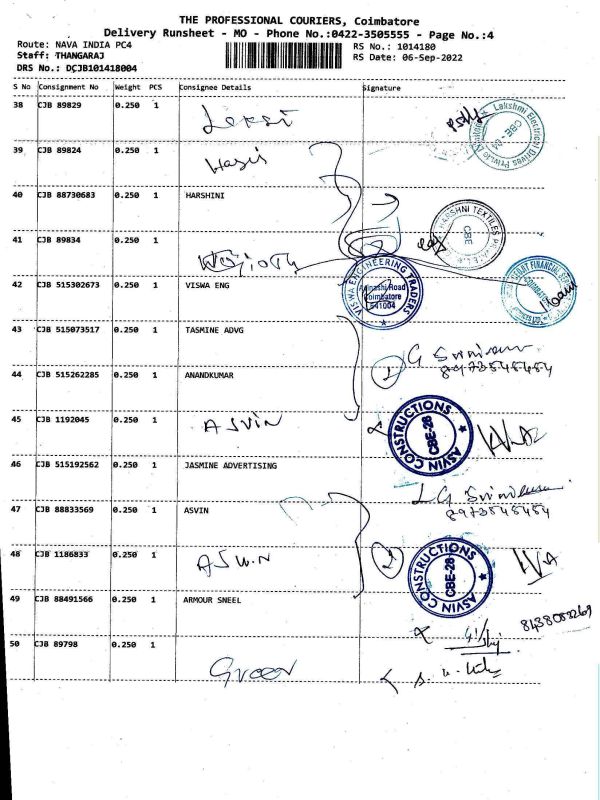 THE PROFESSIONAL COURIERS, Coimbatore
Delivery Runsheet - MO - Phone No.:0422-3505555 - Page No.:4
Route: NAVA INDIA PC4
RS No.: 1014180
Staff: THANGARAJ
RS Date: 06-Sep-2022
DRS No.: DCJB101418004
S No Consignment No Weight PCS Consignee Details Signature
38 CJB 89829 0.250 1
Lakshmi Electrical Drives
39 CJB 89824 0.250 1
40 CJB 88730683 0.250 1 HARSHINI
HARSHNI TEXTILES
CBE
41 CJB 89834 0.250 1
42 CJB 515302673 0.250 1 VISWA ENG
VISWA ENGINEERING TRADERS
Avinashi Road
Coimbatore
641004
43 CJB 515073517 0.250 1 TASMINE ADVG
8973545454
44 CJB 515262285 0.250 1 ANANDKUMAR
45 CJB 1192045 0.250 1 ASVIN
ASVIN CONSTRUCTIONS
CBE-28
46 CJB 515192562 0.250 1 JASMINE ADVERTISING
47 CJB 88833569 0.250 1 ASVIN
8973545454
48 CJB 1186833 0.250 1 ASWIN
ASVIN CONSTRUCTIONS
CBE-28
49 CJB 88491566 0.250 1 ARMOUR SNEEL
50 CJB 89798 0.250 1